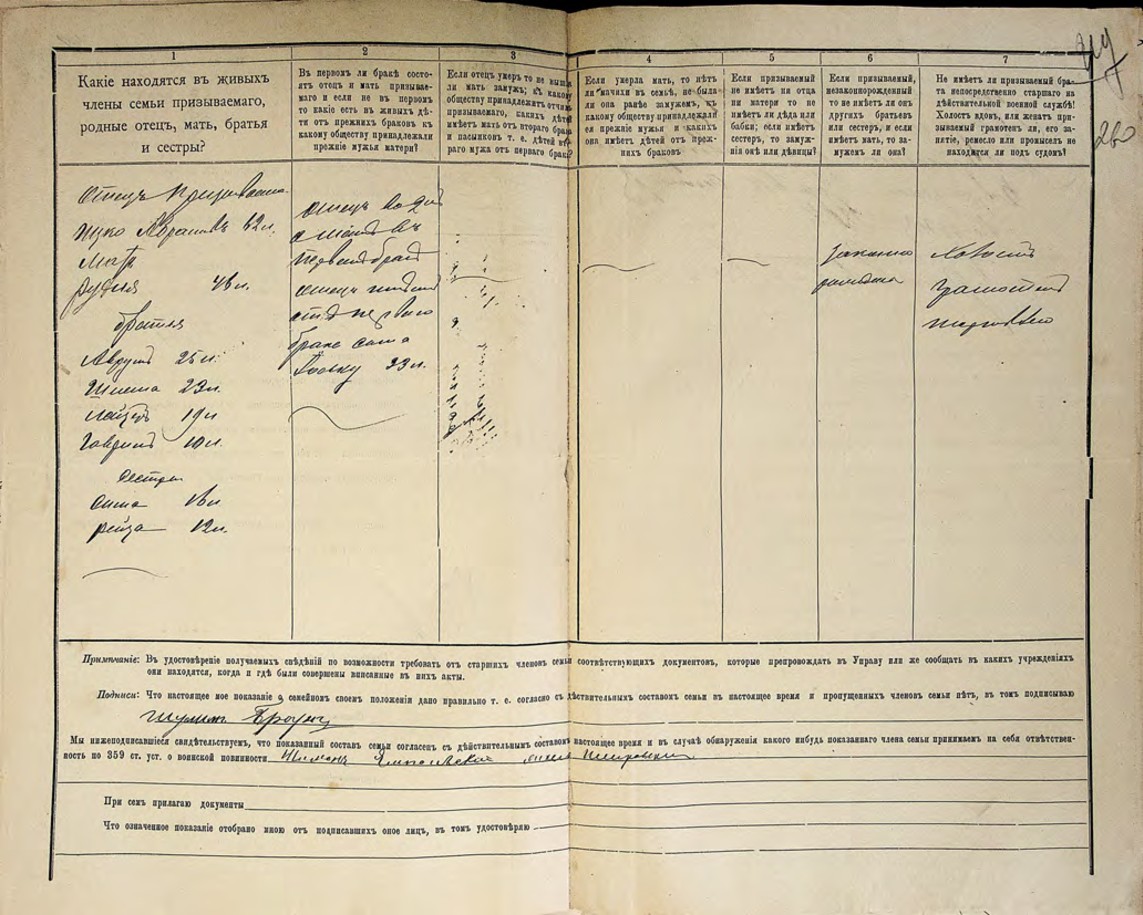 1
2
3
4
5
6
7
Какіе находятся въ живыхъ
члены семьи призываемаго,
родные отецъ, мать, братья
и сестры?
Въ первомъ ли бракѣ состо-
ятъ отецъ и мать призывае-
маго и если не въ первомъ
то какіе есть въ живыхъ дѣ-
ти отъ прежнихъ браковъ къ
какому обществу принадлежали
прежніе мужья матери?
Если отецъ умеръ то не вышла
ли мать замужъ; къ какому
обществу принадлежитъ отчимъ
призываемаго, какихъ дѣтей
имѣетъ мать отъ втораго брака
и пасынковъ т. е. дѣтей
раго мужа отъ перваго брака?
Если умерла мать, то нѣтъ
ли мачихи въ семьѣ, не была
ли она ранѣе замужемъ, къ
какому обществу принадлежали
ея прежніе мужья и какихъ
она имѣетъ дѣтей отъ преж-
нихъ браковъ
Если призываемый
не имѣетъ ни отца
ни матери то не
имѣетъ ли дѣда или
бабки; если имѣетъ
сестеръ, то замуж-
нія онѣ или дѣвицы?
Если призываемый,
незаконнорожденный
то не имѣетъ ли онъ
другихъ братьевъ
или сестеръ, и если
имѣетъ мать, то за-
мужемъ ли она?
Не имѣетъ ли призываемый бра-
та непосредственно старшаго на
дѣйствительной военной службѣ!
Холостъ вдовъ, или женатъ при-
зываемый грамотенъ ли, его за-
нятіе, ремесло или промыселъ не
находится ли подъ судомъ?
260
Отецъ
62 л.
Мать
48 л.
братья
25 л.
Шлема 23 л.
Лейзеръ 19 л
10 л.
Сестры
Сима 18 л
Рейза 12 л.
Отецъ во 2мъ
а мать въ
первомъ бракѣ
отецъ имѣетъ
отъ перваго
брака сына
33 л.
Законно
рожденъ
Холостъ
Грамотенъ
Примѣчаніе: Въ удостовѣреніе получаемыхъ свѣдѣній по возможности требовать отъ старшихъ членовъ семьи соотвѣтствующихъ документовъ, которые препровождать въ Управу или же сообщать въ какихъ учрежденіяхъ
они находятся, когда и гдѣ были совершены вписанные въ нихъ акты.
Подписи: Что настоящее мое показаніе о семейномъ своемъ положеніи дано правильно т. е. согласно съ дѣйствительнымъ составомъ семьи въ настоящее время и пропущенныхъ членовъ семьи нѣтъ, въ томъ подписываю
Шулимъ Броунъ
Мы нижеподписавшіеся свидѣтельствуемъ, что показанный составъ семьи согласенъ съ дѣйствительнымъ составомъ настоящее время и въ случаѣ обнаруженія какого нибудь показаннаго члена семьи принимаемъ на себя отвѣтствен-
ность по 359 ст. уст. о воинской повинности
При семъ прилагаю документы
Что означенное показаніе отобрано мною отъ подписавшихъ оное лицъ, въ томъ удостовѣряю